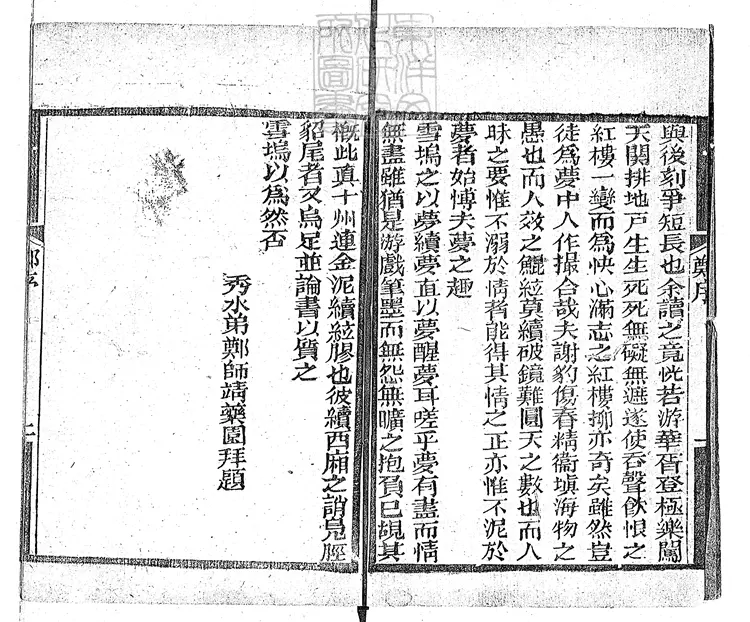 與後刻爭短長也余讀之竟恍若游華胥登極樂闢
天關排地戸生生死死無礙無遮遂使吞聲飮恨之
紅樓一變而爲快心滿志之紅樓抑亦奇矣雖然豈
徒爲夢中人作撮合哉夫謝豹傷春精衞塡海物之
愚也而人效之鯤絃莫續破鏡難圓天之數也而人
昧之要惟不溺於情者能得其情之正亦惟不泥於
夢者始愽夫夢之趣
雪塢之以夢續夢直以夢醒夢耳嗟乎夢有盡而情
無盡雖猶是游戲筆墨而無怨無曠之抱負已覘其
槪此眞十州連金泥續絃膠也彼續西廂之誚鳧脛
貂尾者又烏足並論書以質之
雪塢以爲然否
秀水弟鄭師靖藥園拜題
鄭序
一
鄭序
二
東洋文
圖書